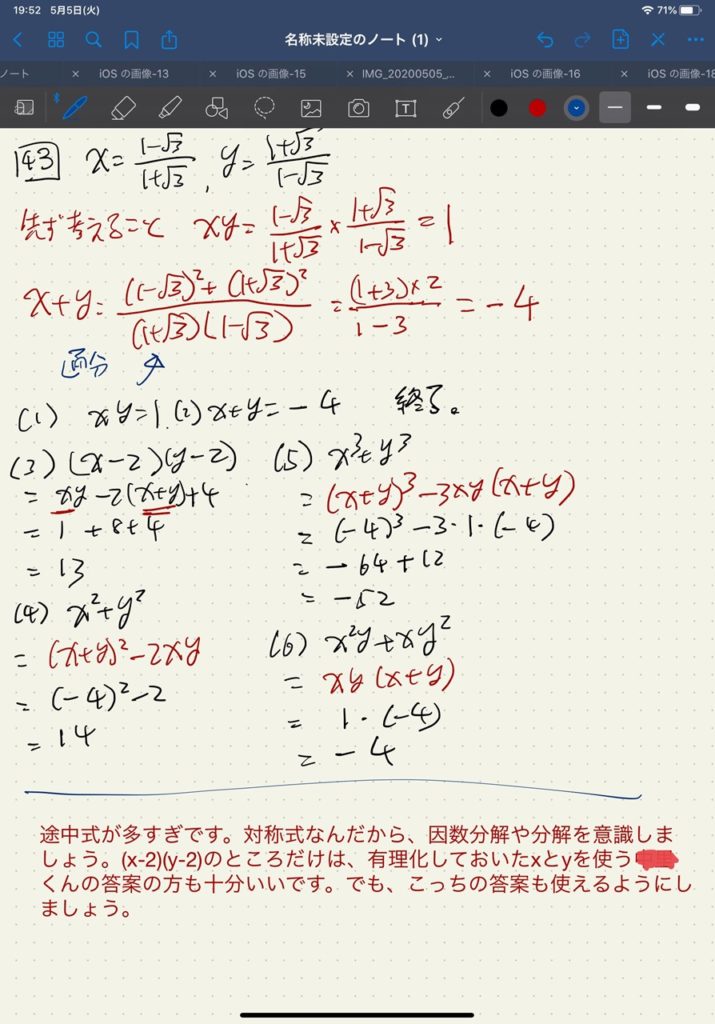 19:52 5月5日(火)
71%
名称未設定のノート (1)
ノート
iOS の画像-13
iOS の画像-15
IMG_20200505_...
iOS の画像-16
iOS の画像-18
143 x=(1-√3)/(1+√3), y=(1+√3)/(1-√3)
先ず考えること xy=(1-√3)/(1+√3)×(1+√3)/(1-√3)=1
x+y=((1-√3)²+(1+√3)²)/((1+√3)(1-√3))=((1+3)×2)/(1-3)=-4
通分
(1) xy=1 (2) x+y=-4 終了。
(3) (x-2)(y-2)
=xy-2(x+y)+4
=1+8+4
=13
(4) x²+y²
=(x+y)²-2xy
=(-4)²-2
=14
(5) x³+y³
=(x+y)³-3xy(x+y)
=(-4)³-3・1・(-4)
=-64+12
=-52
(6) x²y+xy²
=xy(x+y)
=1・(-4)
=-4
途中式が多すぎです。対称式なんだから、因数分解や分解を意識しま
しょう。(x-2)(y-2)のところだけは、有理化しておいたxとyを使う
くんの答案の方も十分いいです。でも、こっちの答案も使えるようにし
ましょう。